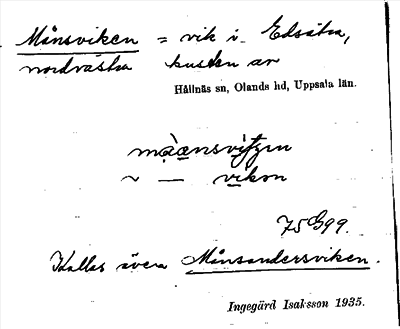 Månsviken = vik i Edsätra,
nordvästra kusten av
Hållnäs sn, Olands hd, Uppsala län.
~ — vikon
75G99.
Kallas även Månsandersviken.
Ingegärd Isaksson 1935.